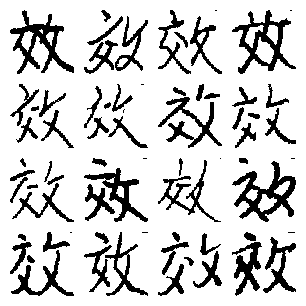 效效效效
效效效效
效效效效
效效效效